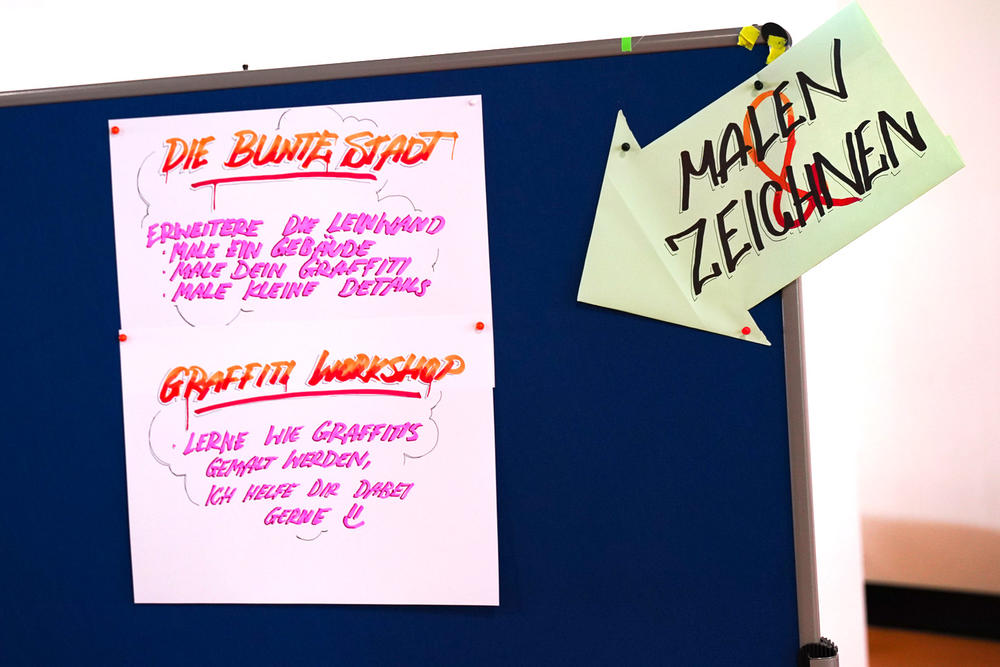 DIE BUNTE STADT
ERWEITERE DIE LEINWAND
· MALE EIN GEBÄUDE
· MALE DEIN GRAFFITI
· MALE KLEINE DETAILS
GRAFFITI WORKSHOP
· LERNE WIE GRAFFITIS
GEMALT WERDEN,
ICH HELFE DIR DABEI
GERNE :)
MALEN
&
ZEICHNEN